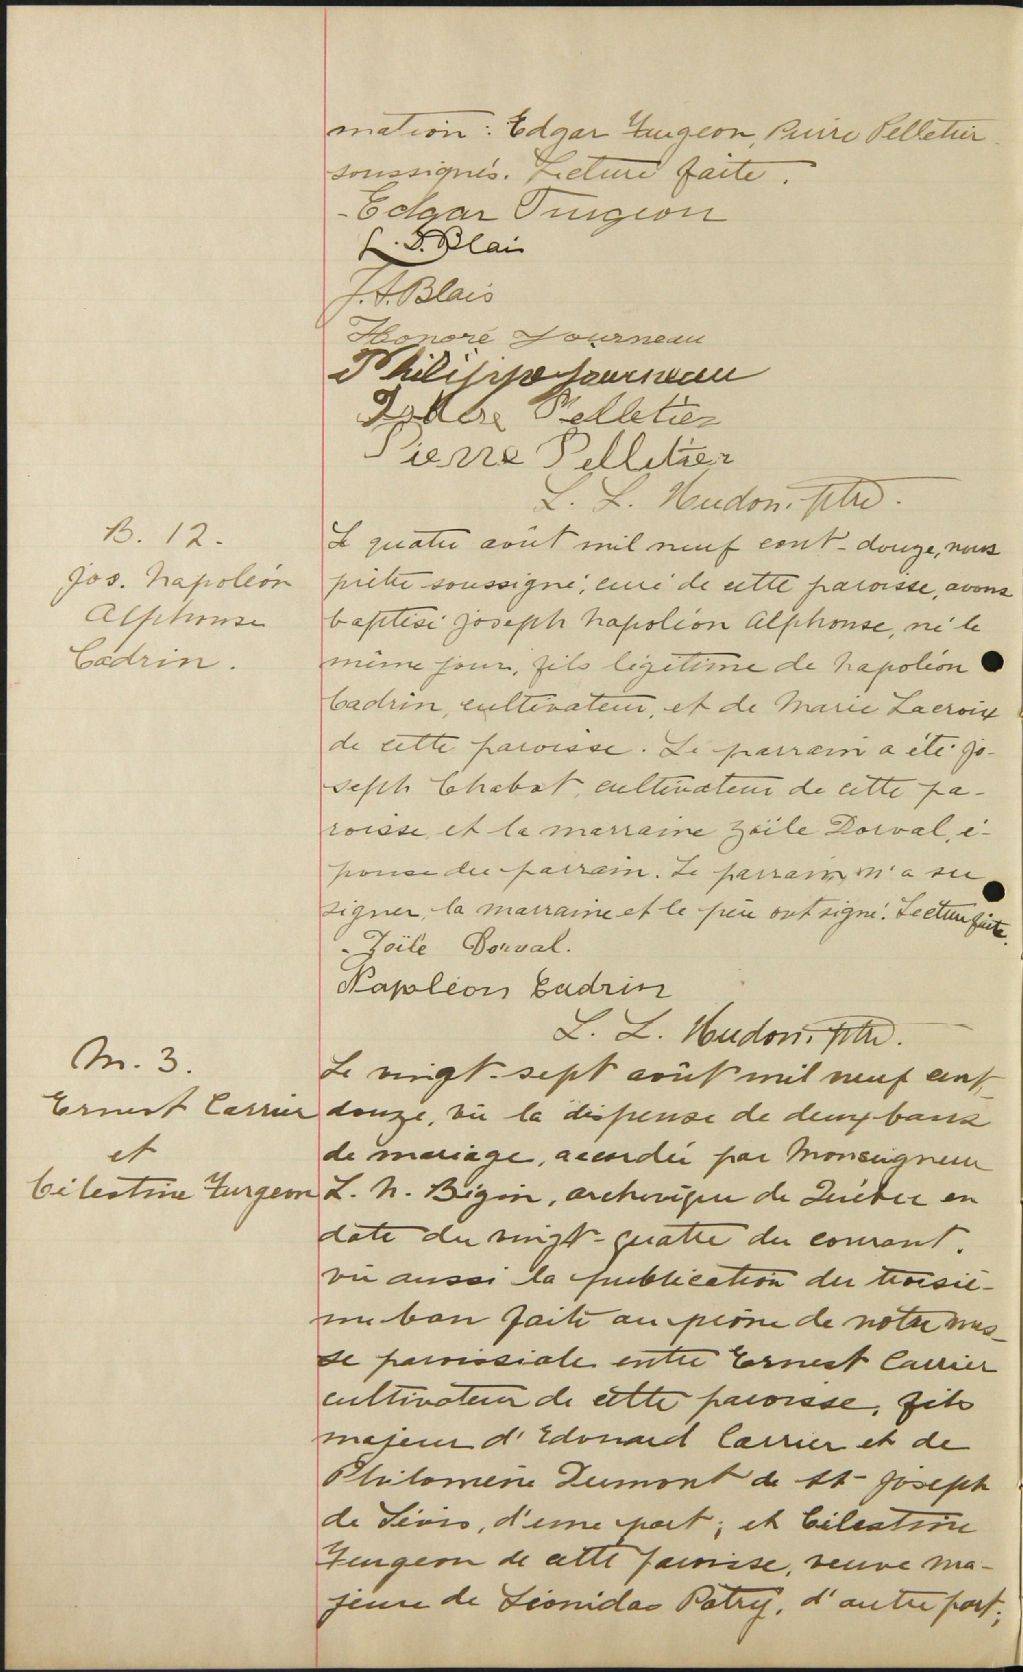 mation: Edgar Turgeon, Pierre Pelletier
soussignés. Lecture faite.
-Edgar Turgeon
L. D. Blais
J. A. Blais
Honoré Fourneau
Philippe Journeau
Isidore Pelletier
Pierre Pelletier
L. L. Hudon, ptre.
B. 12.
Jos. Napoléon
Alphonse
Cadrin.
Le quatre août mil neuf cent-douze, nous
prêtre soussigné, curé de cette paroisse, avons
baptisé Joseph Napoléon Alphonse, né le
même jour, fils légitime de Napoléon
Cadrin, cultivateur, et de Marie Lacroix
de cette paroisse. Le parrain a été Jo-
seph Chabot, cultivateur de cette pa-
roisse, et la marraine Zoïle Dorval, é-
pouse du parrain. Le parrain n'a su
signer, la marraine et le père ont signé. Lecture faite.
- Zoïle Dorval.
Napoléon Cadrin
L. L. Hudon, ptre.
M. 3.
Ernest Carrier
et
Célestine Turgeon
Le vingt-sept août mil neuf cent-
douze, vu la dispense de deux bans
de mariage, accordée par Monseigneur
L. N. Bégin, archevêque de Québec en
date du vingt-quatre du courant.
vu aussi la publication du troisiè-
me ban faite au prône de notre mes-
se paroissiale entre Ernest Carrier
cultivateur de cette paroisse, fils
majeur d'Edouard Carrier et de
Philomène Dumont de St-Joseph
de Lévis, d'une part; et Célestine
Turgeon de cette paroisse, veuve ma-
jeure de Léonidas Patry, d'autre part;